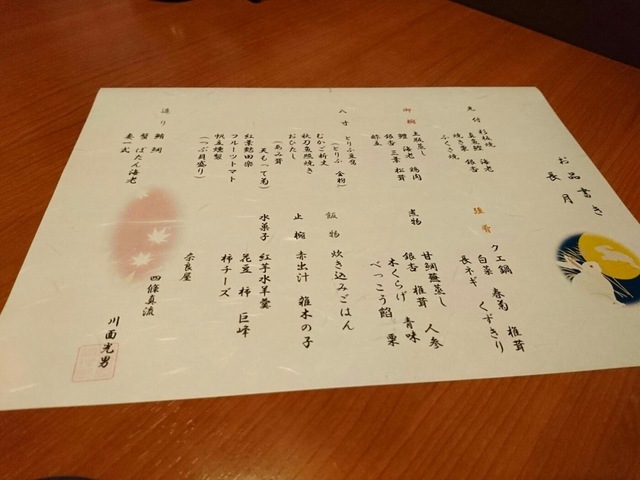 お品書き
長月
先付
杉板焼 海老
真名鰹 銀杏
焼き栗
ふくさ焼
御椀
土瓶蒸し
鱧 海老 鶏肉
銀杏 三葉 松茸
酢立
八寸
とりふ豆腐
(とりふ 金粉)
むかご新丈
秋刀魚照焼き
おひたし
(あみ茸
天もって菊)
紅葉麩田楽
フルーツトマト
帆立燻製
(つぶ貝盛り)
造り
鮪 鯛
蟹 ぼたん海老
妻一式
強肴
クエ鍋 春菊 椎茸
白菜 くずきり
長ネギ
煮物
甘鯛蕪蒸し 人参
銀杏 椎茸 青味
木くらげ 栗
べっこう餡
飯物 炊き込みごはん
止椀 赤出汁 雑木の子
水菓子 紅芋水羊羹
花豆 柿 巨峰
柿チーズ
奈良屋
四條真流
川面光男